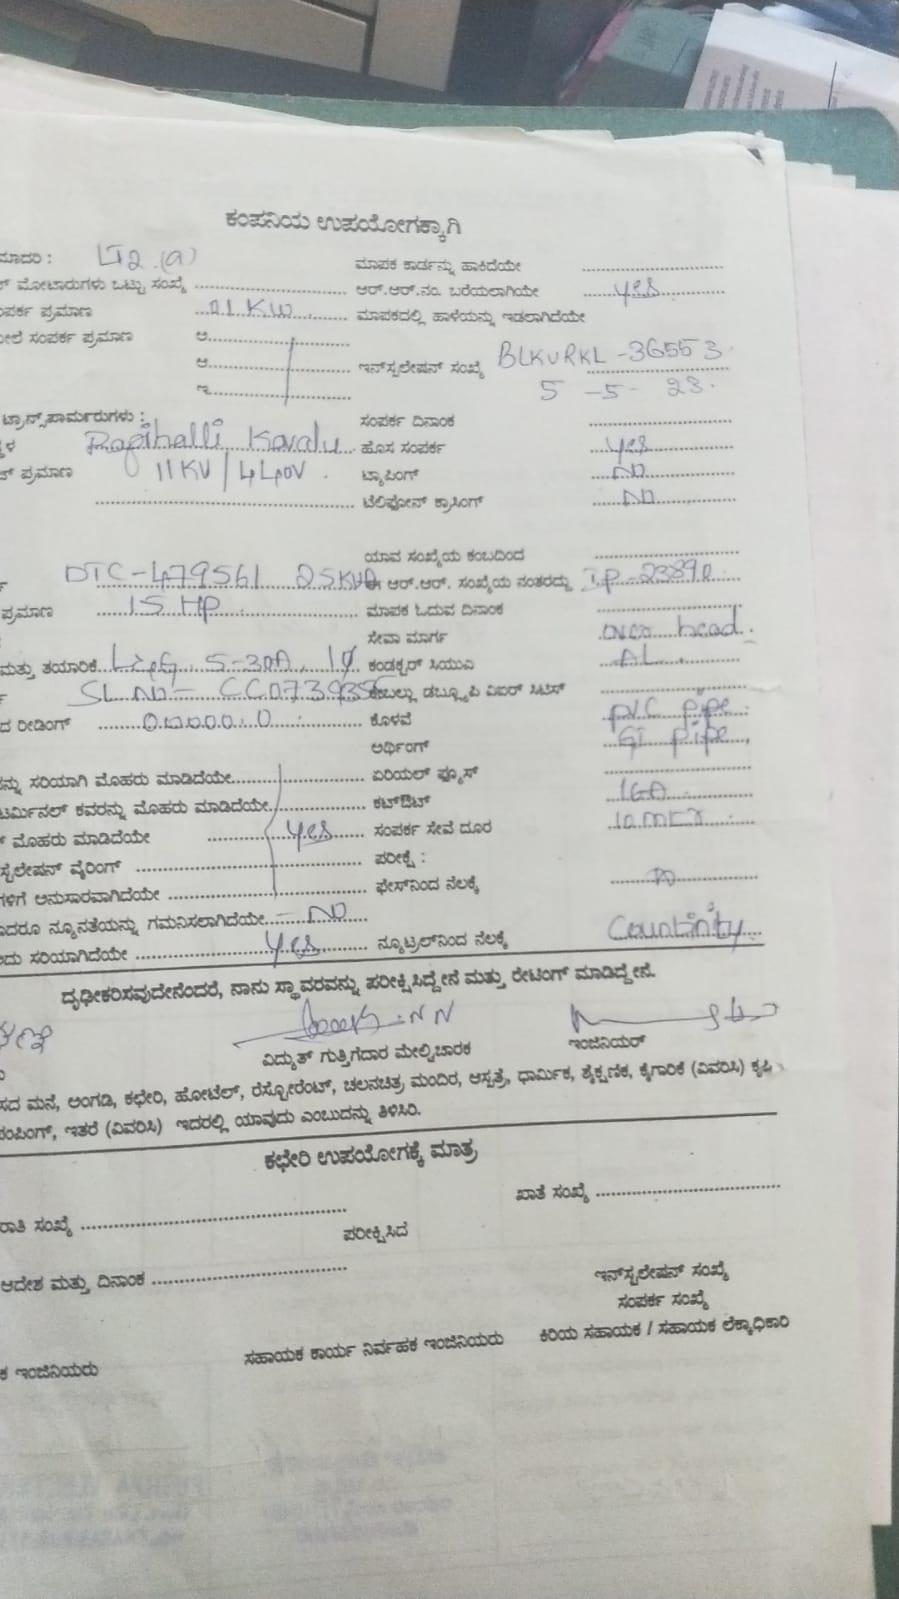 ಕಂಪನಿಯ ಉಪಯೋಗಕ್ಕಾಗಿ
ಮಾದರಿ : LT2.(a) ಮಾಪಕ ಕಾರ್ಡನ್ನು ಹಾಕಿದೆಯೇ
ಮೋಟಾರುಗಳು ಒಟ್ಟು ಸಂಖ್ಯೆ ಆರ್.ಆರ್.ನಂ. ಬರೆಯಲಾಗಿಯೇ yes
ಪರ್ಕ ಪ್ರಮಾಣ 01 KW ಮಾಪಕದಲ್ಲಿ ಹಾಳೆಯನ್ನು ಇಡಲಾಗಿದೆಯೇ
ಸಂಪರ್ಕ ಪ್ರಮಾಣ ಅ.
ಆ. ಇನ್‌ಸ್ಟಲೇಷನ್ ಸಂಖ್ಯೆ BLKURKL-36553
ಇ. 5-5-23.
ಟ್ರಾನ್ಸ್‌ಪಾರ್ಮರುಗಳು : ಸಂಪರ್ಕ ದಿನಾಂಕ
Kavalu ಹೊಸ ಸಂಪರ್ಕ yes
ಪ್ರಮಾಣ 11KV/ ಟ್ಯಾಪಿಂಗ್ NO
ಟೆಲಿಫೋನ್ ಕ್ರಾಸಿಂಗ್ NO
ಯಾವ ಸಂಖ್ಯೆಯ ಕಂಬದಿಂದ
DTC-479561 25KVA ಆರ್.ಆರ್. ಸಂಖ್ಯೆಯ ನಂತರದ್ದು IP-23890
ಪ್ರಮಾಣ 15 HP ಮಾಪಕ ಓದುವ ದಿನಾಂಕ
ಸೇವಾ ಮಾರ್ಗ over head.
ಮತ್ತು ತಯಾರಿಕೆ L&G 5-30A 1Ø ಕಂಡಕ್ಟರ್ ಸಿಯುವಿ AL
SL NO- ಡಬ್ಲ್ಯೂಪಿ
ರೀಡಿಂಗ್ ಕೊಳವೆ PVC pipe.
ಅರ್ಥಿಂಗ್ GI pipe,
ಸರಿಯಾಗಿ ಮೊಹರು ಮಾಡಿದೆಯೇ ಏರಿಯಲ್ ಫ್ಯೂಸ್
ಟರ್ಮಿನಲ್ ಕವರನ್ನು ಮೊಹರು ಮಾಡಿದೆಯೇ ಕಟ್‌ಔಟ್ 16A
ಮೊಹರು ಮಾಡಿದೆಯೇ yes ಸಂಪರ್ಕ ಸೇವೆ ದೂರ
ವೈರಿಂಗ್ ಪರೀಕ್ಷೆ :
ಅನುಸಾರವಾಗಿದೆಯೇ ಫೇಸ್‌ನಿಂದ ನೆಲಕ್ಕೆ
ನ್ಯೂನತೆಯನ್ನು ಗಮನಿಸಲಾಗಿದೆಯೇ - NO
ಸರಿಯಾಗಿದೆಯೇ yes ನ್ಯೂಟ್ರಲ್‌ನಿಂದ ನೆಲಕ್ಕೆ Countinity
ದೃಢೀಕರಿಸವುದೇನೆಂದರೆ, ನಾನು ಸ್ಥಾವರವನ್ನು ಪರೀಕ್ಷಿಸಿದ್ದೇನೆ ಮತ್ತು ರೇಟಿಂಗ್ ಮಾಡಿದ್ದೇನೆ.
ವಿದ್ಯುತ್ ಗುತ್ತಿಗೆದಾರ ಮೇಲ್ವಿಚಾರಕ ಇಂಜಿನಿಯರ್
ಮನೆ, ಅಂಗಡಿ, ಕಛೇರಿ, ಹೋಟೆಲ್, ರೆಸ್ಟೋರೆಂಟ್, ಚಲನಚಿತ್ರ ಮಂದಿರ, ಆಸ್ಪತ್ರೆ, ಧಾರ್ಮಿಕ, ಶೈಕ್ಷಣಿಕ, ಕೈಗಾರಿಕೆ (ವಿವರಿಸಿ) ಕೃಷಿ
ಪಂಪಿಂಗ್, ಇತರೆ (ವಿವರಿಸಿ) ಇದರಲ್ಲಿ ಯಾವುದು ಎಂಬುದನ್ನು ತಿಳಿಸಿರಿ.
ಕಛೇರಿ ಉಪಯೋಗಕ್ಕೆ ಮಾತ್ರ
ಸಂಖ್ಯೆ ಖಾತೆ ಸಂಖ್ಯೆ
ಪರೀಕ್ಷಿಸಿದ
ಆದೇಶ ಮತ್ತು ದಿನಾಂಕ
ಇನ್‌ಸ್ಟಲೇಷನ್ ಸಂಖ್ಯೆ
ಸಂಪರ್ಕ ಸಂಖ್ಯೆ
ಇಂಜಿನಿಯರು ಸಹಾಯಕ ಕಾರ್ಯ ನಿರ್ವಹಕ ಇಂಜಿನಿಯರು ಕಿರಿಯ ಸಹಾಯಕ / ಸಹಾಯಕ ಲೆಕ್ಕಾಧಿಕಾರಿ